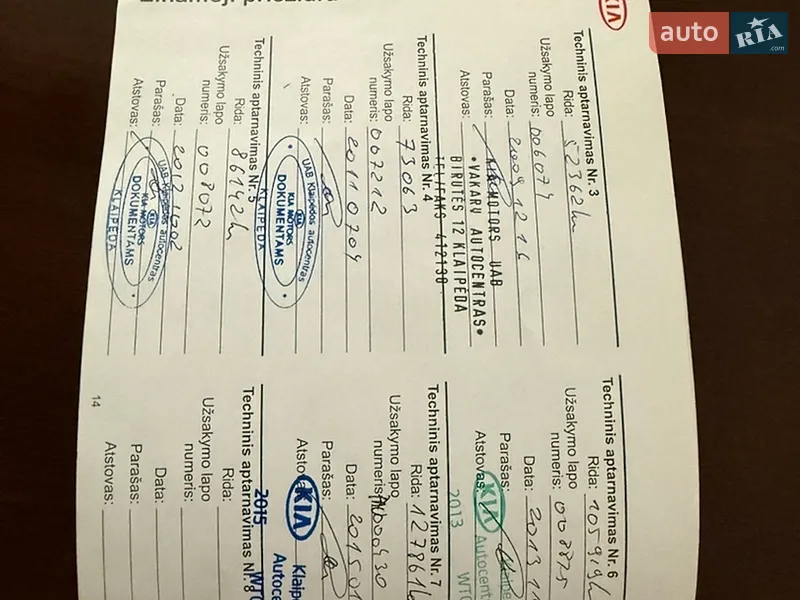 KIA
auto
RIA
.com
Techninis aptarnavimas Nr. 3
Rida: 52362 km
Užsakymo lapo
numeris: 006074
Data: 2009 12 16
Parašas:
Atstovas:
MOTORS UAB
•VAKARŲ AUTOCENTRAS•
BIRUTĖS 12 KLAIPĖDA
TEL/FAKS 412130
Techninis aptarnavimas Nr. 4
Rida: 73063
Užsakymo lapo
numeris: 007212
Data: 2011 07 04
Parašas:
Atstovas:
UAB Klaipėdos autocentras
KIA
KIA MOTORS
DOKUMENTAMS
KLAIPĖDA
Techninis aptarnavimas Nr. 5
Rida: 86142 km
Užsakymo lapo
numeris: 008072
Data: 2012 1002
Parašas:
Atstovas:
UAB Klaipėdos autocentras
KIA
KIA MOTORS
DOKUMENTAMS
KLAIPĖDA
Techninis aptarnavimas Nr. 6
Rida: 105919
Užsakymo lapo
numeris: 008875
Data: 2013 11
Parašas:
Atstovas:
KIA
Autocent
2013
Techninis aptarnavimas Nr. 7
Rida: 127861
Užsakymo lapo
numeris:
Data: 201501
Parašas:
KIA
Klaip
Autoce
2015
Techninis aptarnavimas Nr. 8
Rida:
Užsakymo lapo
numeris:
Data:
Parašas:
Atstovas:
14